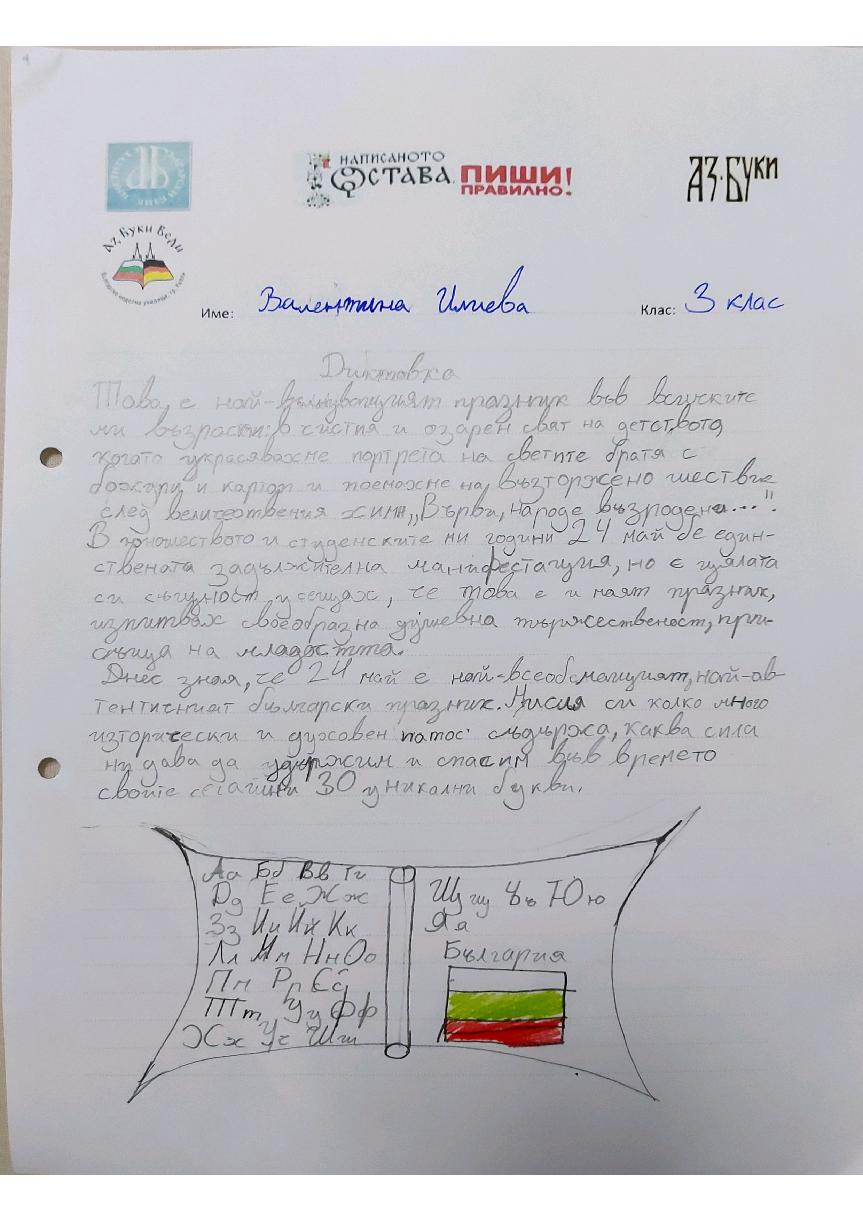 НАПИСАНОТО
ОСТАВА
ПИШИ
ПРАВИЛНО!
АЗ·БУКИ
Аз, Буки Веди
Име: Валентина Илиева Клас: 3 клас
Диктовка
Това е най-вълнуващият празник във всичките
ми възрасти: в чистия и озарен свят на детството,
когато украсявахме портрета на светите братя с
божури и картом и поемахме на възторжено шествие
след величествения химн „Върви, народе възродени...".
В юношеството и студенските ми години 24 май бе един-
ствената задължителна манифестация, но с цялата
си същност усещах, че това е и моят празник,
изпитвах своеобразна душевна тържественост, при-
съща на младостта.
Днес зная, че 24 май е най-всеобемащият, най-ав-
тентичният български празник. Мисля си колко много
изторически и духовен патос съдържа, каква сила
ни дава да удържим и спасим във времето
своите сегашни 30 уникални букви.
Аа Бб Вв Гг
Дд Ее Жж
Зз Ии Йй Кк
Лл Мм Нн Оо
Пп Рр Сс
Тт Уу Фф
Хх Чч Шш
Щщ Ъъ Юю
Яя
България